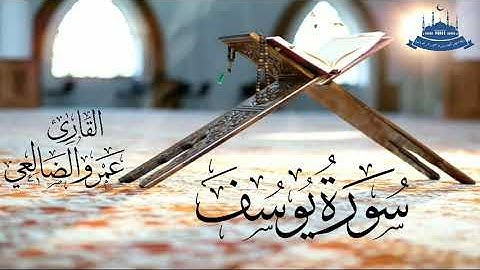 القَارِئ
عَمْرو الضَالعِي
سُورَةُ يُوسُفَ